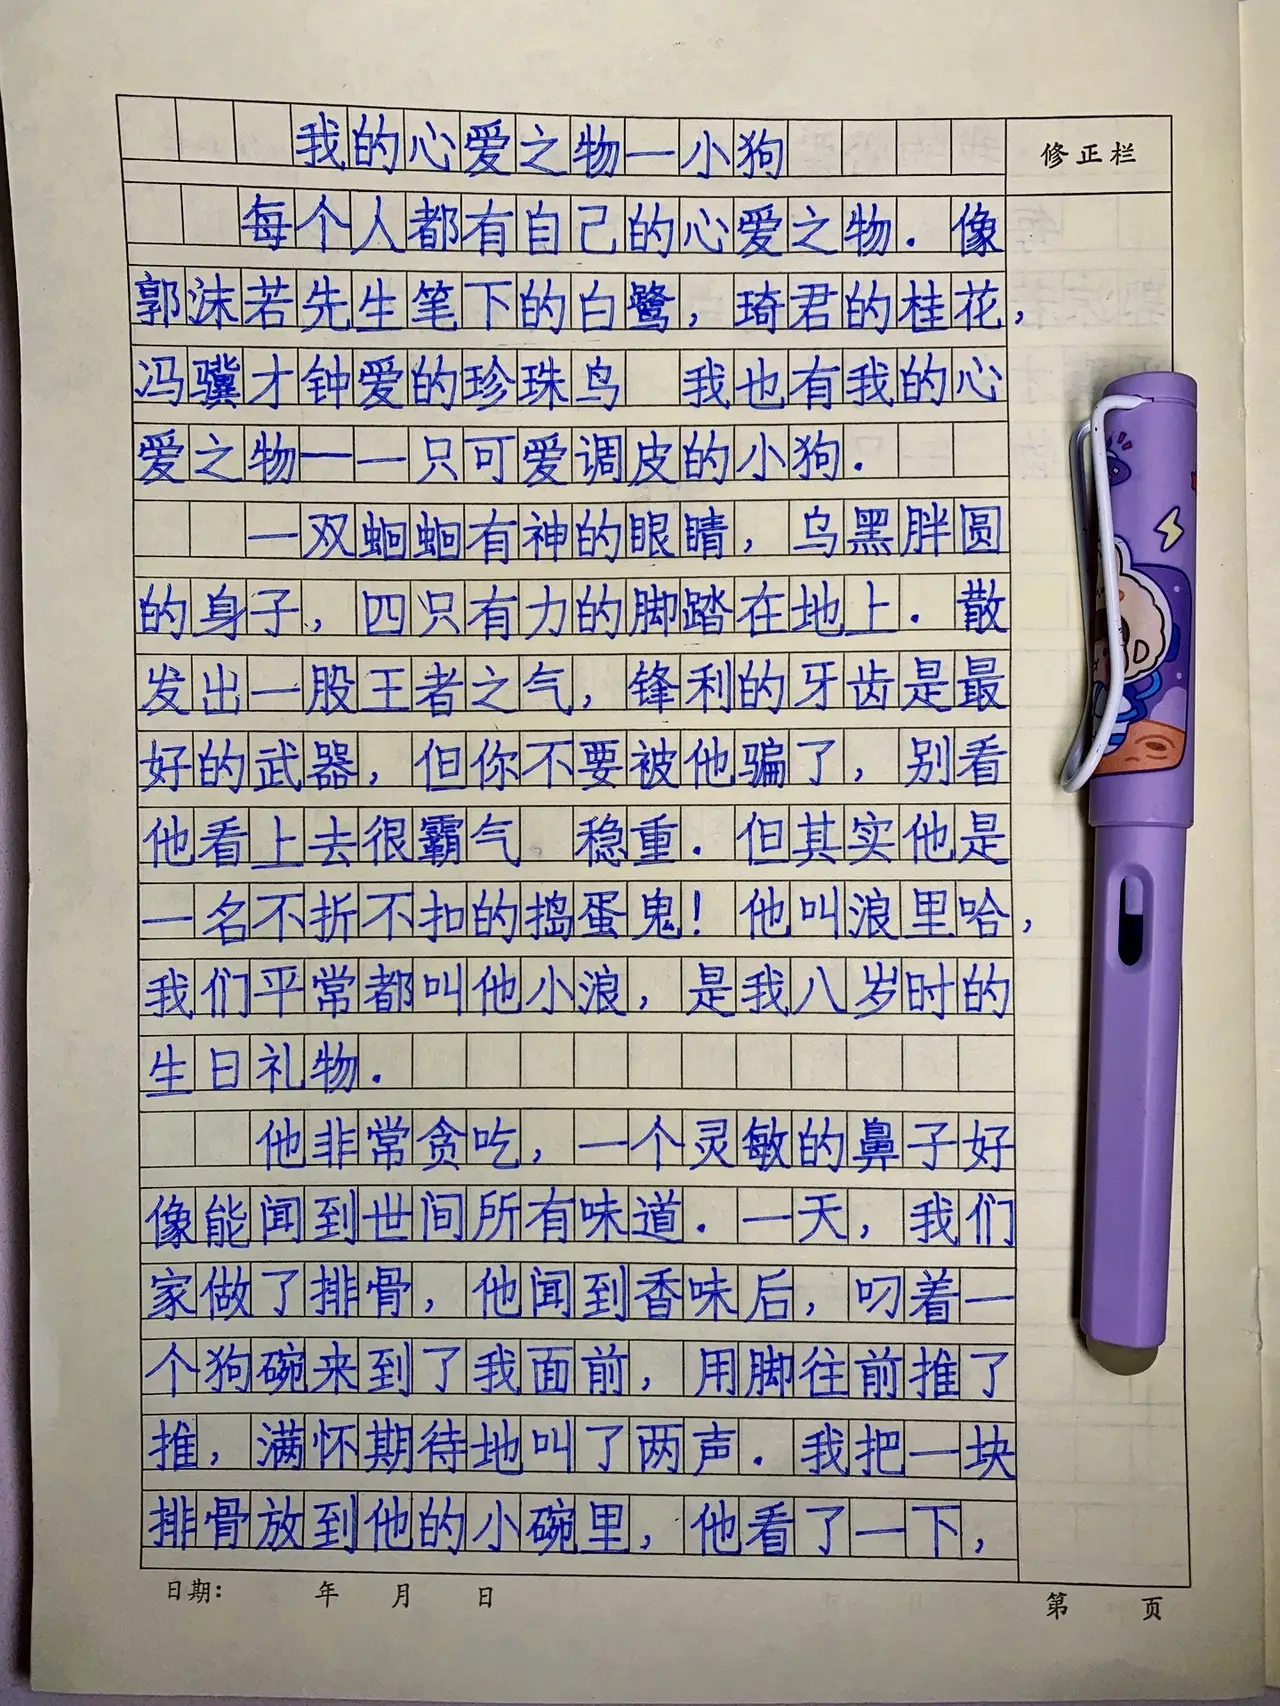 我的心爱之物—小狗
修正栏
每个人都有自己的心爱之物．像
郭沫若先生笔下的白鹭，琦君的桂花，
冯骥才钟爱的珍珠鸟 我也有我的心
爱之物——一只可爱调皮的小狗．
一双蛔蛔有神的眼睛，乌黑胖圆
的身子，四只有力的脚踏在地上．散
发出一股王者之气，锋利的牙齿是最
好的武器，但你不要被他骗了，别看
他看上去很霸气 稳重．但其实他是
一名不折不扣的捣蛋鬼！他叫浪里哈，
我们平常都叫他小浪，是我八岁时的
生日礼物．
他非常贪吃，一个灵敏的鼻子好
像能闻到世间所有味道．一天，我们
家做了排骨，他闻到香味后，叼着一
个狗碗来到了我面前，用脚往前推了
推，满怀期待地叫了两声．我把一块
排骨放到他的小碗里，他看了一下，
日期： 年 月 日 第 页